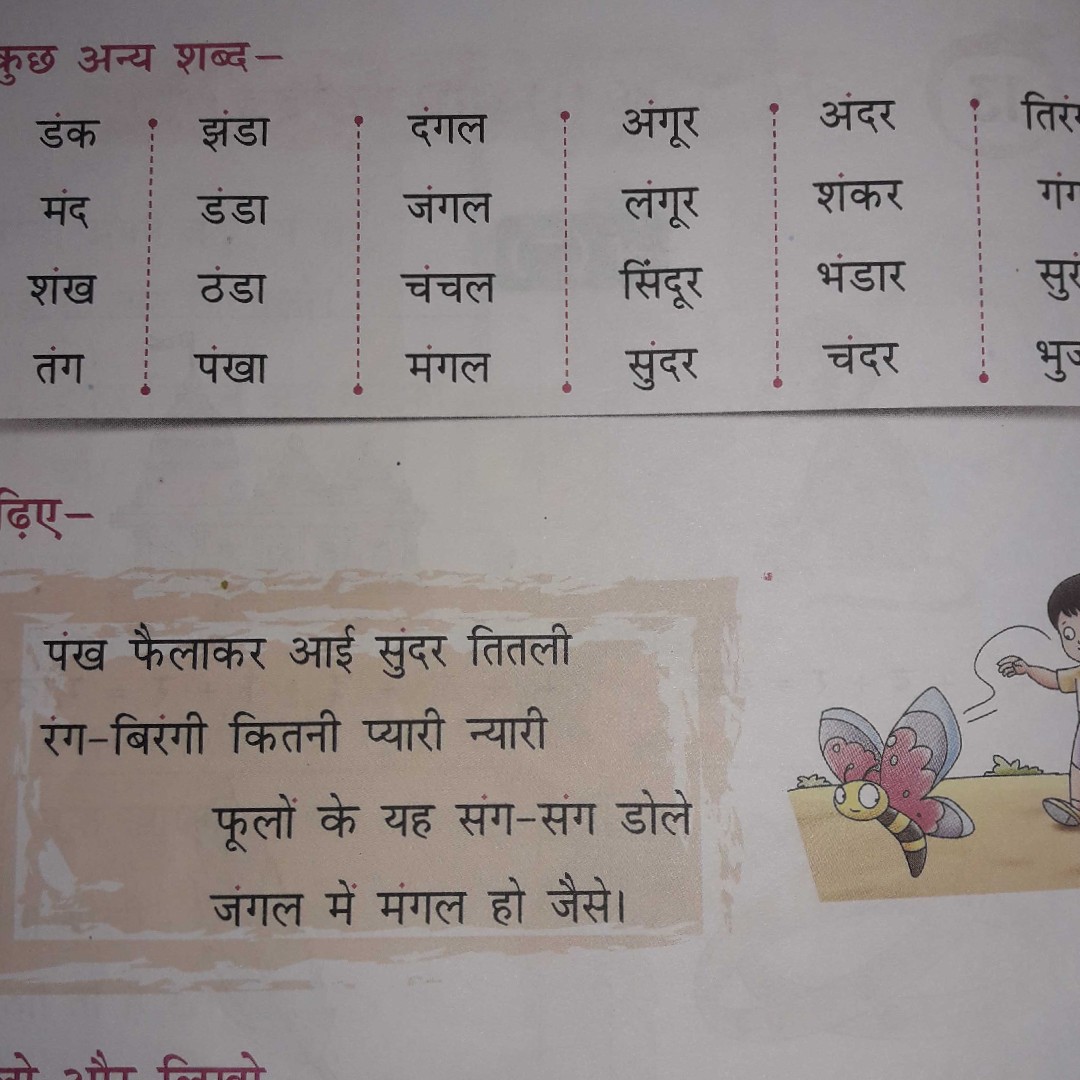 कुछ अन्य शब्द–
डंक झंडा दंगल अंगूर अंदर
मंद डंडा जंगल लंगूर शंकर
शंख ठंडा चंचल सिंदूर भंडार
तंग पंखा मंगल सुंदर चंदर
पंख फैलाकर आई सुंदर तितली
रंग-बिरंगी कितनी प्यारी न्यारी
फूलों के यह संग-संग डोले
जंगल में मंगल हो जैसे।